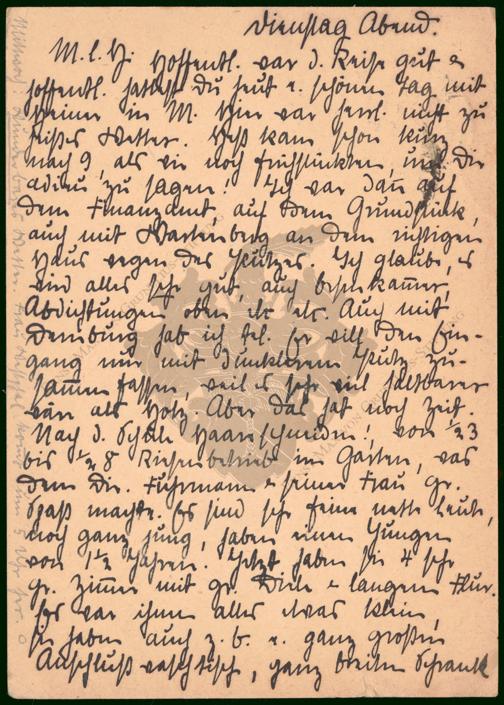 Dienstag Abend.
M. l. H. Hoffentl. war d. Reise gut u
hoffentl. hattest Du heut e. schönen Tag mit
in M. Hier war herrl. nicht zu
heißes Wetter. Heß kam schon kurz
nach 9, als wir noch frühstückten, um Dir
adieu zu sagen! Ich war dan auf
dem Finanzamt, auf dem Grundstück,
auch mit Wartenberg an dem richtigen
Haus wegen des Putzes. Ich glaube, es
wird alles sehr gut, auch Besenkammer,
Abdichtungen oben etc etc. Auch mit
Demburg hab ich tel. Er will den Ein-
gang nur mit dunklerem Putz zu-
sammenfassen, weil es sehr viel haltbarer
wär als Holz. Aber das hat noch Zeit.
Nach d. Schule Haareschneiden!, von ½3
bis ½8 Riesenbetrieb im Garten, was
dem Dir. Fuhrmann u seiner Frau gr.
Spaß machte. Es sind sehr feine nette Leute,
noch ganz jung, haben einen Jungen
von 1½ Jahren. Jetzt haben sie 4 sehr
gr. Zimmer mit gr. Diele u langem Flur.
Es war ihnen alles etwas klein,
sie haben auch z. b. e. ganz großen
Anschlußwaschtisch, ganz breiten Schrank
Mittwoch: Wunderbares Wetter. Frau kommt um 5 Uhr